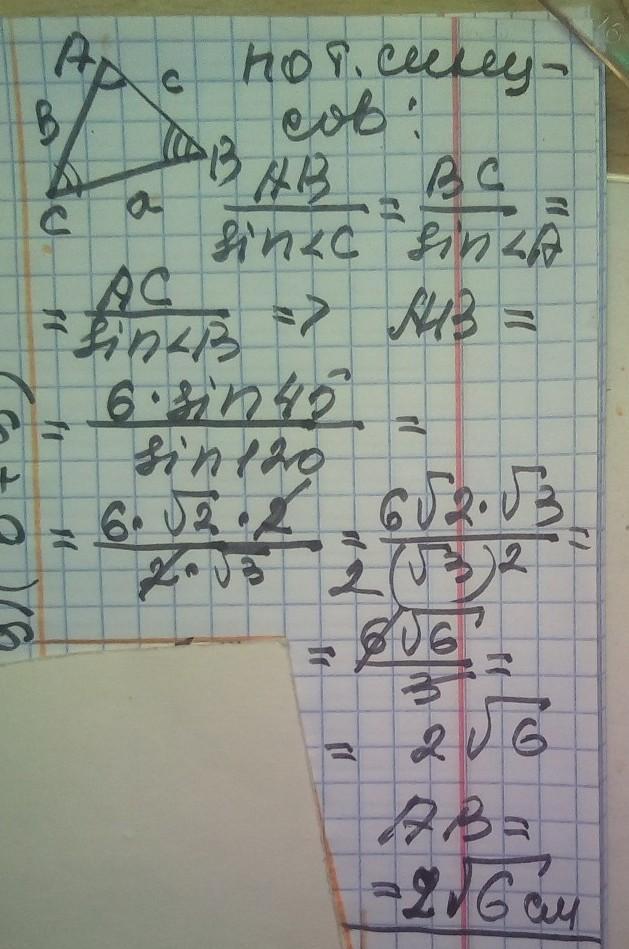 A c по т. сину-
B B сов:
C a
AB/sin<C = BC/sin<A =
= AC/sin<B => AB =
= 6·sin45/sin120 =
= 6·√2·2/2·√3 = 6√2·√3/(√3)² =
= 6√6/3 =
= 2√6
AB =
= 2√6 см